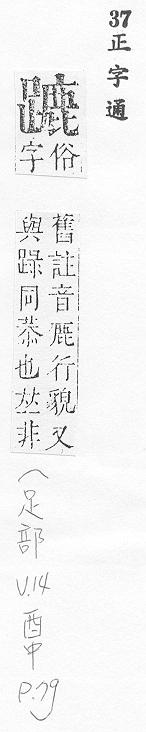 37正字通
蹗俗
字
舊註音鹿行貌又
與同恭也𠀤非
(足部 V.14 酉中 P.79)